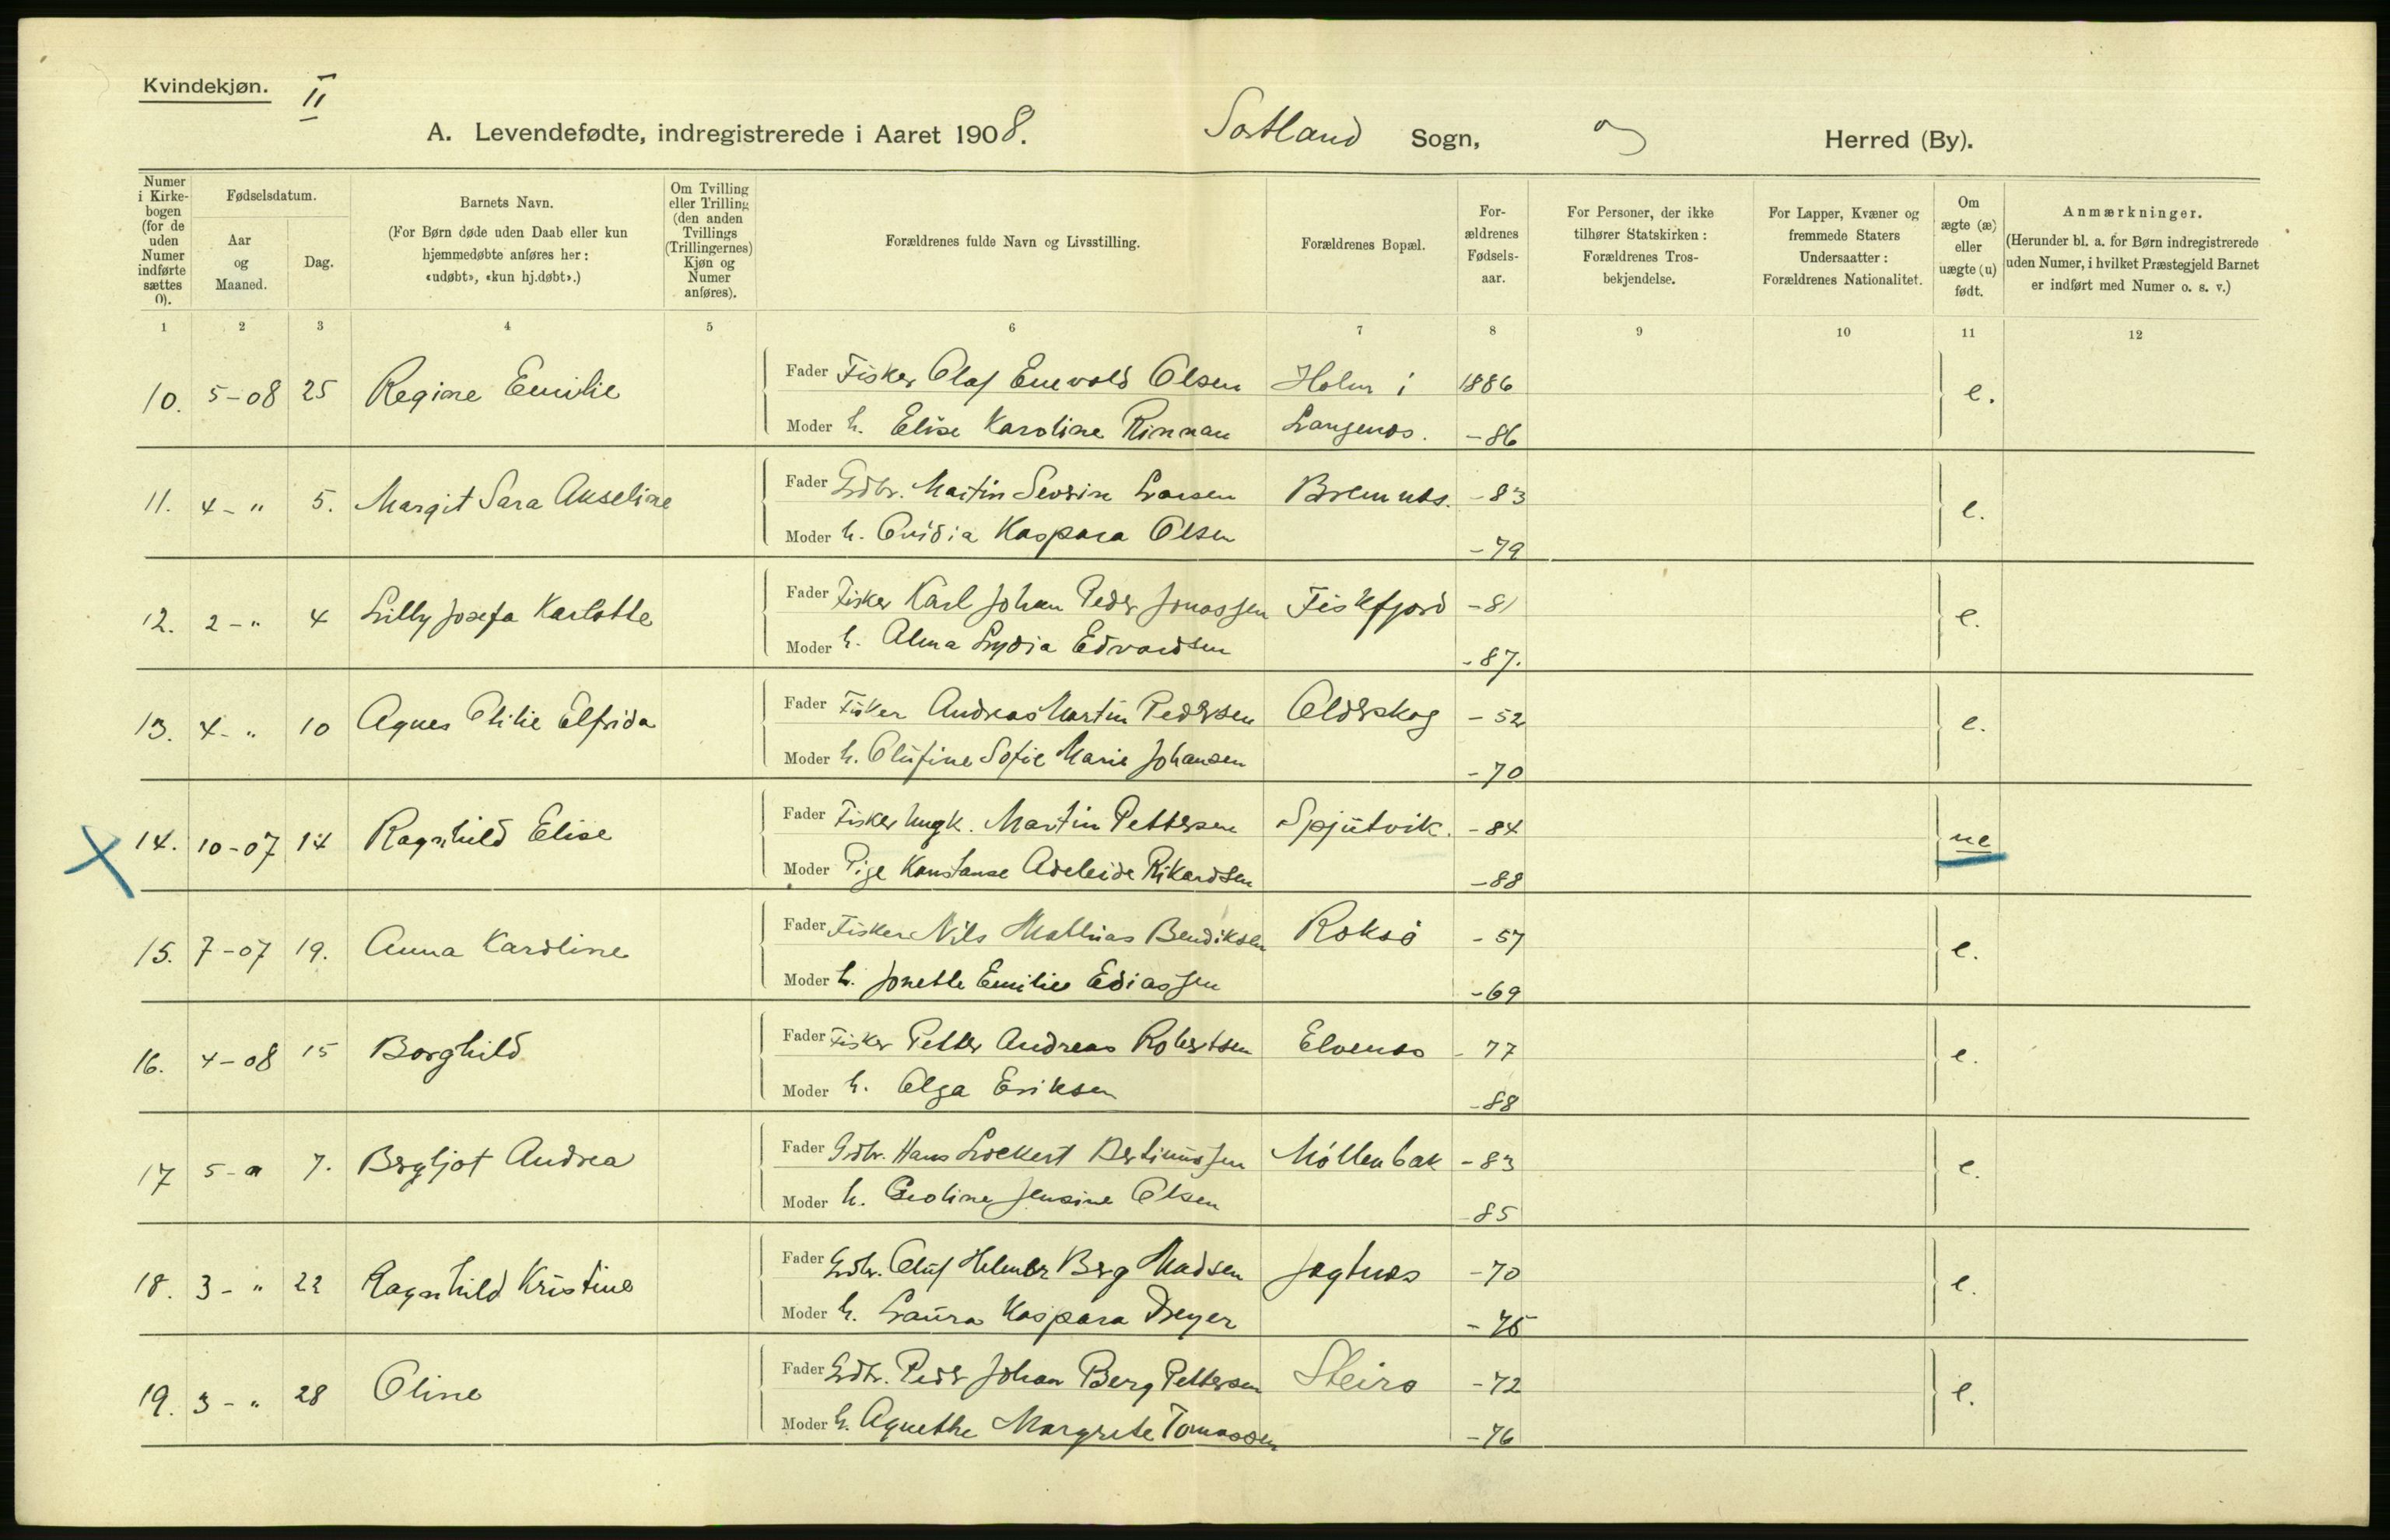 Kvindekjøn. II
A. Levendefødte, indregistrerede i Aaret 1908. Sortland Sogn, Herred (By).
Numer i Kirkebogen (for de uden Numer indførte sættes 0).
Fødselsdatum.
Aar og Maaned.
Dag.
Barnets Navn.
(For Børn døde uden Daab eller kun hjemmedøbte anføres her: «udøbt», «kun hj.døbt».)
Om Tvilling eller Trilling (den anden Tvillings (Trillingernes) Kjøn og Numer anføres).
Forældrenes fulde Navn og Livsstilling.
Forældrenes Bopæl.
Forældrenes Fødselsaar.
For Personer, der ikke tilhører Statskirken: Forældrenes Trosbekjendelse.
For Lapper, Kvæner og fremmede Staters Undersaatter: Forældrenes Nationalitet.
Om ægte (æ) eller uægte (u) født.
Anmærkninger.
(Herunder bl. a. for Børn indregistrerede uden Numer, i hvilket Præstegjeld Barnet er indført med Numer o. s. v.)
1 2 3 4 5 6 7 8 9 10 11 12
10. 5-08 25 Regine Emilie Fader Fisker Olaf Enevold Olsen Holm i 1886 e.
Moder h. Elise Karoline Rinnan Langenes. -86
11. 4-" 5. Margit Sara Akseline Fader Gdbr. Martin Severin Larsen Bremnes. -83 e.
Moder h. Ovidia Kaspara Olsen -79
12. 2-" 4 Lilly Josefa Karlotte Fader Fisker Karl Johan Peder Jonassen Fiskfjord -81 e.
Moder h. Alma Lydia Edvardsen -87.
13. 4-" 10 Agnes Otilie Elfrida Fader Fisker Andreas Martin Pedersen Olderskog -52 e.
Moder h. Olufine Sofie Marie Johansen -70
14. 10-07 14 Ragnhild Elise Fader Fisker Ungk. Martin Pettersen Spjutvik. -84 ue
Moder Pige Konstanse Adeleide Rikardsen -88
15. 7-07 19. Anna Karoline Fader Fisker Nils Mathias Bendiksen Roksø -57 e.
Moder h. Jonette Emilie Ediassen -69
16. 4-08 15 Borghild Fader Fisker Petter Andreas Robertsen Elvenes -77 e.
Moder h. Olga Eriksen -88
17 5-" 7. Bergljot Andrea Fader Gdbr. Hans Lockert Bertinussen Møllenbak -83 e.
Moder h. Jensine Olsen 85
18. 3-" 22 Ragnhild Kristine Fader Gdbr. Oluf Helmer Berg Madsen Jagtnes -70 e.
Moder h. Laura Kaspara Dreyer -75
19. 3-" 28 Oline Fader Gdbr. Peder Johan Berg Pettersen Steiro -72 e.
Moder h. Agnethe Margrete Tomassen -76